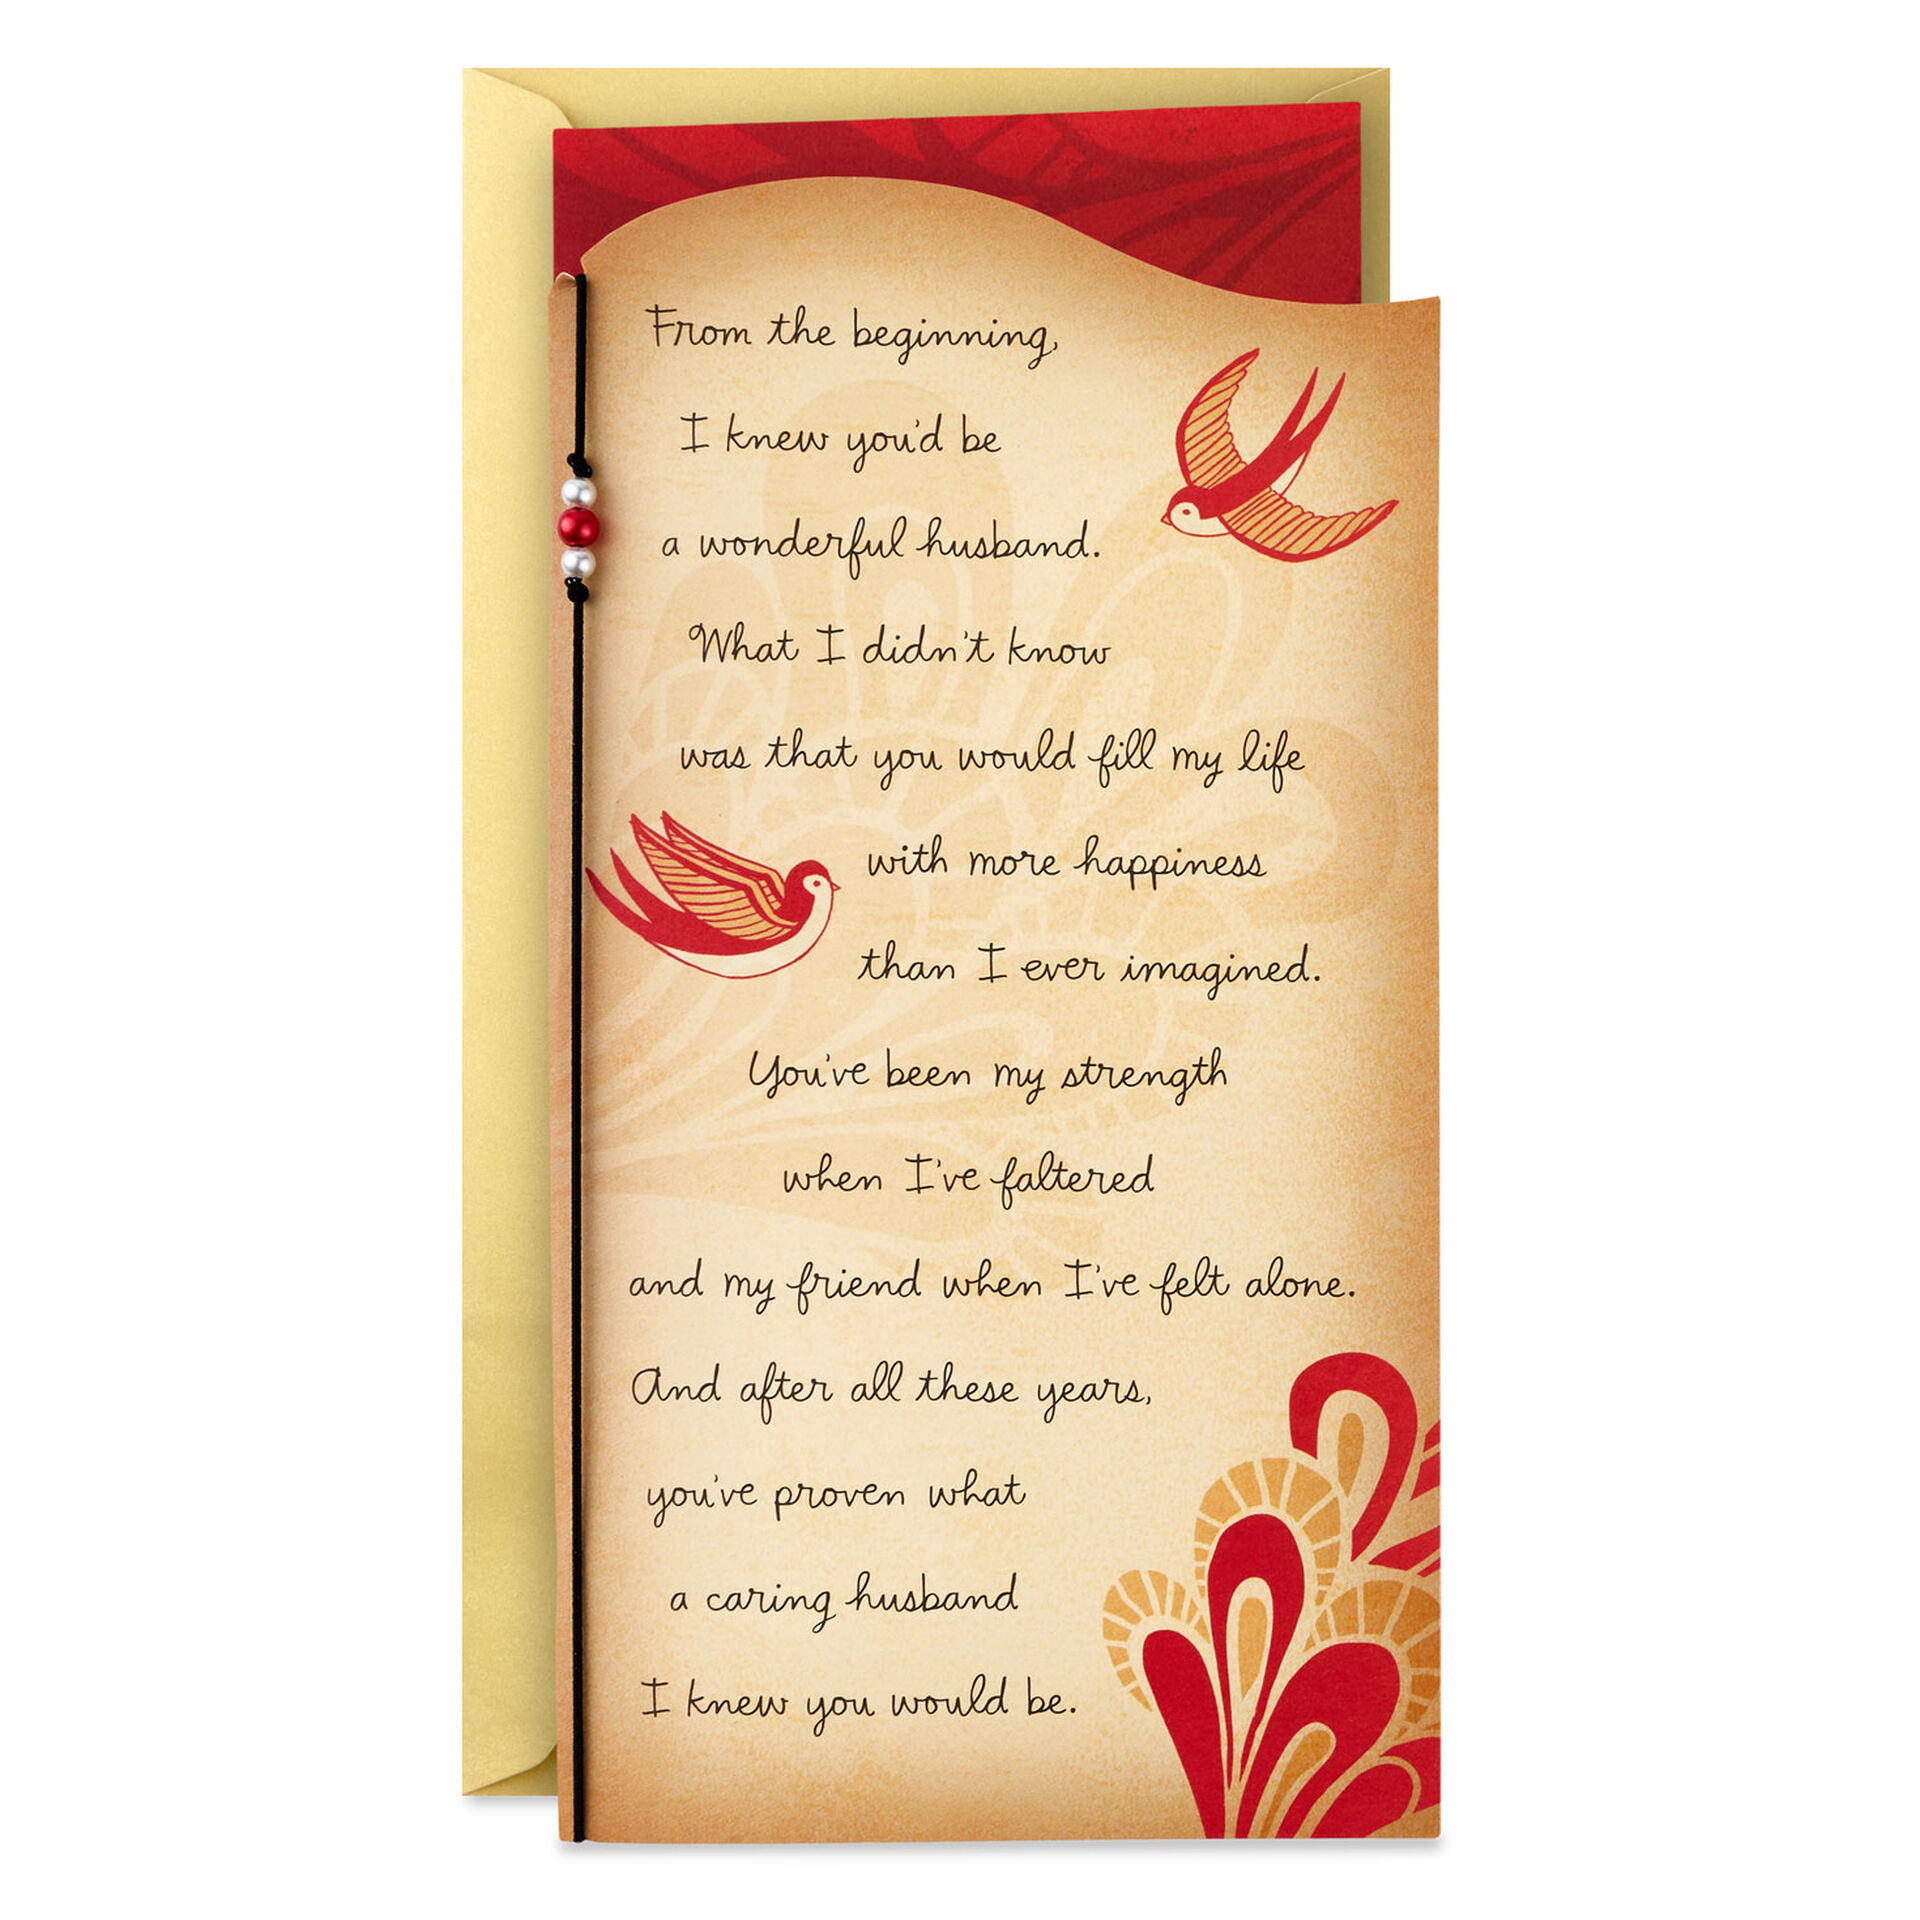 From the beginning,
I knew you'd be
a wonderful husband.
What I didn't know
was that you would fill my life
with more happiness
than I ever imagined.
You've been my strength
when I've faltered
and my friend when I've felt alone.
And after all these years,
you've proven what
a caring husband
I knew you would be.